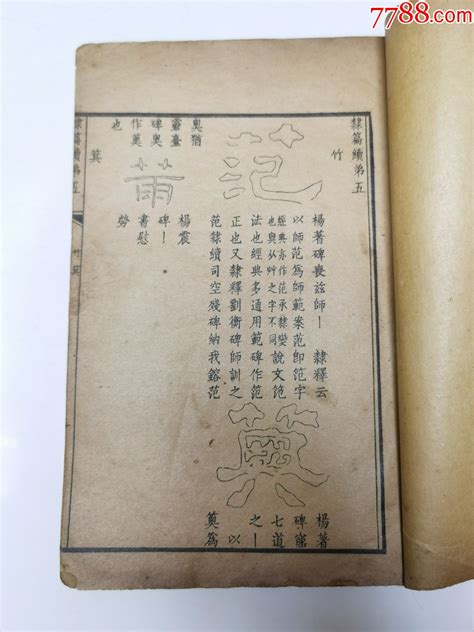 隸篇續第五
竹
范
楊著碑喪茲師丨 隸釋云
以師范爲師範案范卽笵字
經典亦作范承隸變
也與从艸之字不同
說文笵
法也經典多通用範碑作范
正也又隸釋劉衡碑師訓之
范隸續司空殘碑納我鎔范
楊著
碑窮
七道
之丨
以
爲
奧猶
靈臺
碑奧
作
也
楊震
碑丨
書慰
勞
隸篇續第五
7788.com